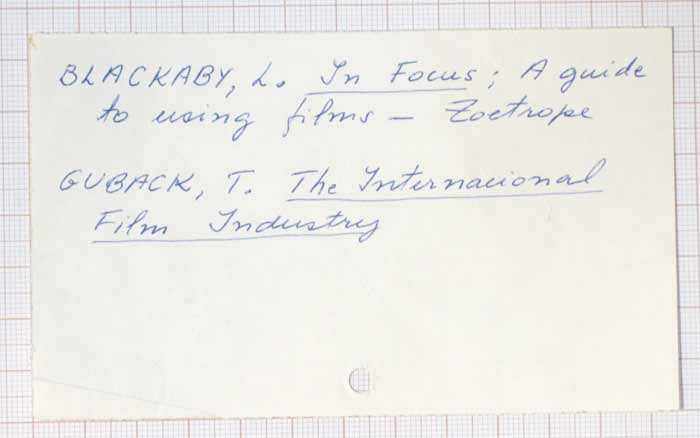 BLACKABY, L. In Focus; A guide
to using films — Zoetrope
GUBACK, T. The Internacional
Film Industry